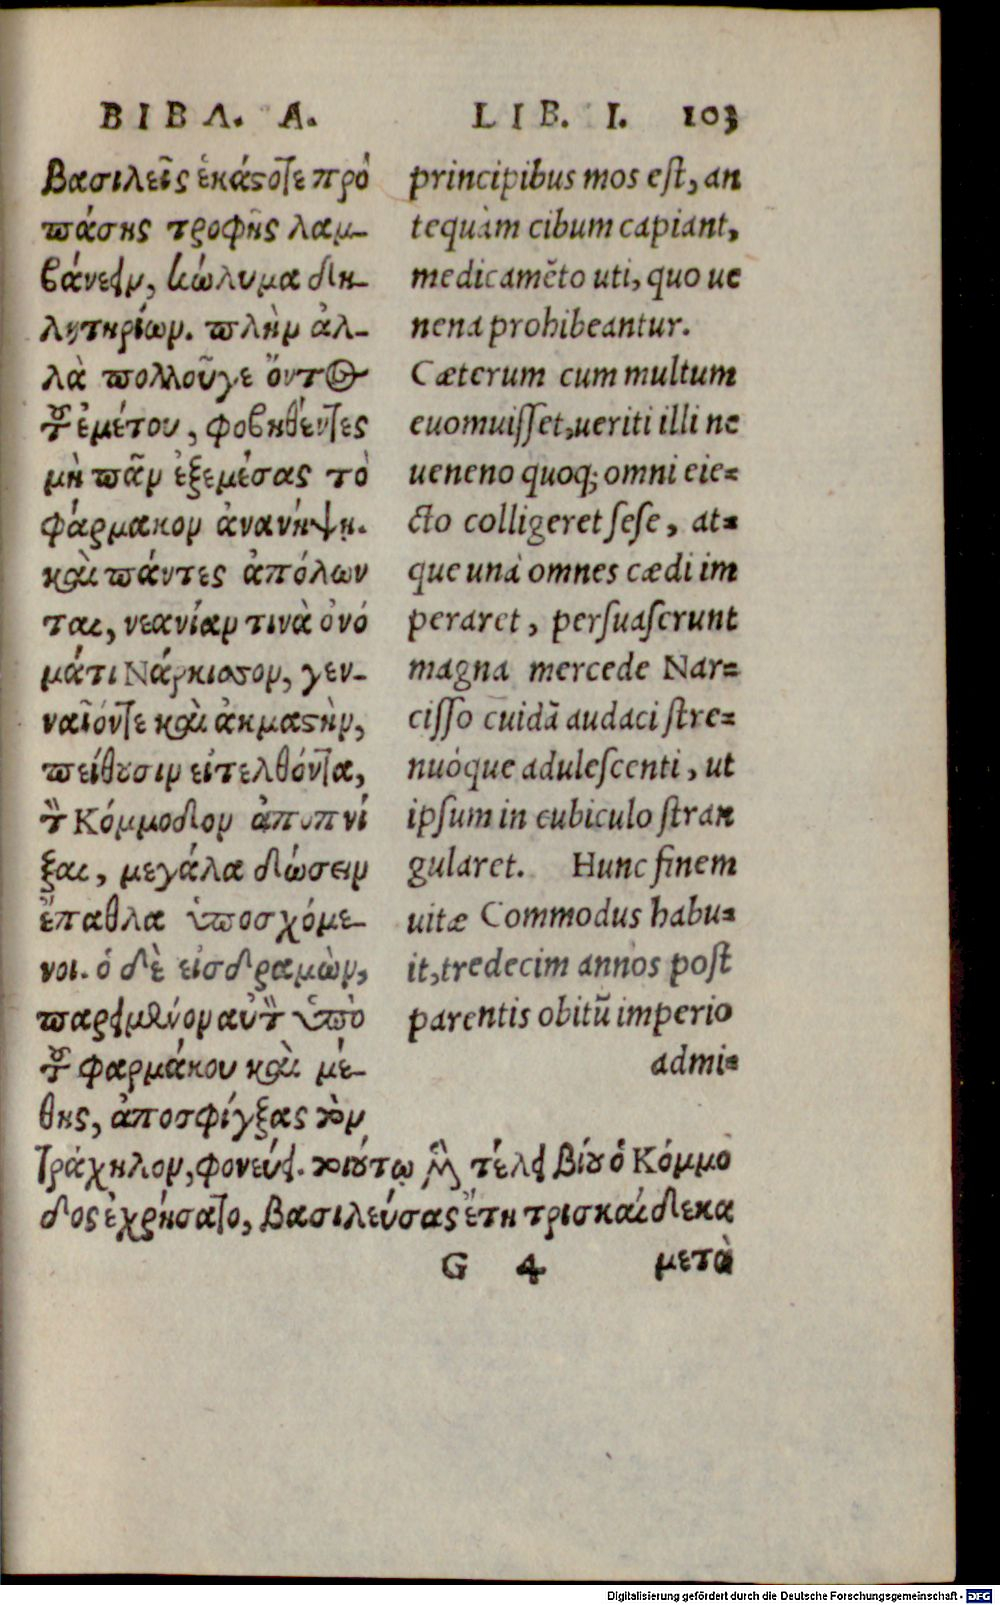 ΒΙΒΛ. Α.
βασιλεῖς ἑκάστοτε πρὸ
πάσης τροφῆς λαμ-
βάνειν, κώλυμα δη-
λητηρίων. πλὴν ἀλ-
λὰ πολλοῦγε ὄντος
τοῦ ἐμέτου, φοβηθέντες
μὴ πᾶν ἐξεμέσας τὸ
φάρμακον ἀνανήψῃ.
καὶ πάντες ἀπόλων
ται, νεανίαν τινὰ ὀνό
ματι Νάρκισσον, γεν-
ναῖόντε καὶ ἀκμαστὴν,
πείθουσιν εἰσελθόντα,
τὸν Κόμμοδον ἀποπνί
ξαι, μεγάλα δώσειν
ἔπαθλα ὑποσχόμε-
νοι. ὁ δὲ εἰσδραμὼν,
παρειμένον αὐτὸν ὑπὸ
τοῦ φαρμάκου καὶ μέ-
θης, ἀποσφίγξας τὸν
τράχηλον, φονεύει. τοιούτῳ μὲν τέλει βίου ὁ Κόμμο
δος ἐχρήσατο, βασιλεύσας ἔτη τρισκαίδεκα
LIB. I. 103
principibus mos est, an
tequàm cibum capiant,
medicamēto uti, quo ue
nena prohibeantur.
Cæterum cum multum
euomuisset, ueriti illi ne
ueneno quoq; omni eie=
cto colligeret sese, at=
que unà omnes cædi im
peraret, persuaserunt
magna mercede Nar=
cisso cuidā audaci stre=
nuóque adulescenti, ut
ipsum in cubiculo stran
gularet. Hunc finem
uitæ Commodus habu=
it, tredecim annos post
parentis obitū imperio
admi=
G 4 μετὰ
Digitalisierung gefördert durch die Deutsche Forschungsgemeinschaft - DFG